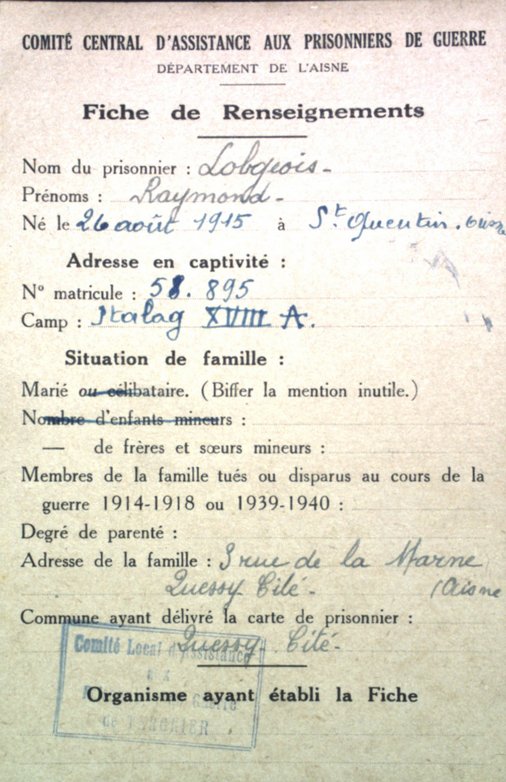 COMITÉ CENTRAL D'ASSISTANCE AUX PRISONNIERS DE GUERRE
DÉPARTEMENT DE L'AISNE
Fiche de Renseignements
Nom du prisonnier : Lobgeois -
Prénoms : Raymond -
Né le 26 août 1915 à St Quentin. Aisne
Adresse en captivité :
N° matricule : 58.895
Camp : Stalag XVIII A.
Situation de famille :
Marié ou célibataire. (Biffer la mention inutile.)
Nombre d'enfants mineurs :
— de frères et sœurs mineurs :
Membres de la famille tués ou disparus au cours de la
guerre 1914-1918 ou 1939-1940 :
Degré de parenté :
Adresse de la famille : 3 rue de la Marne
Quessy Cité - (Aisne
Commune ayant délivré la carte de prisonnier :
Quessy - Cité -
Comité Local d'Assistance
aux
Guerre
de TERGNIER
Organisme ayant établi la Fiche